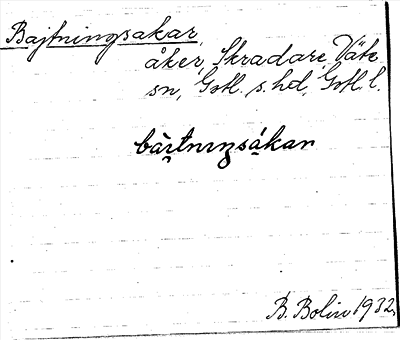 Bajtningsakar,
åker, Skradare, Väte
sn, Gotl. s. hd, Gotl. l.
bàı̣tnıŋsákar
B. Bolin 1932.